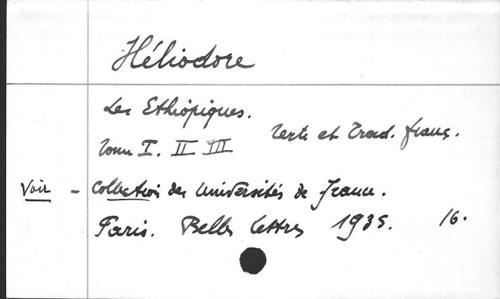 Héliodore
Les Ethiopiques.
Tome I. II III Texte et Trad. franç.
Voir - Collection des Universités de France.
Paris. Belles Lettres 1935. 16.